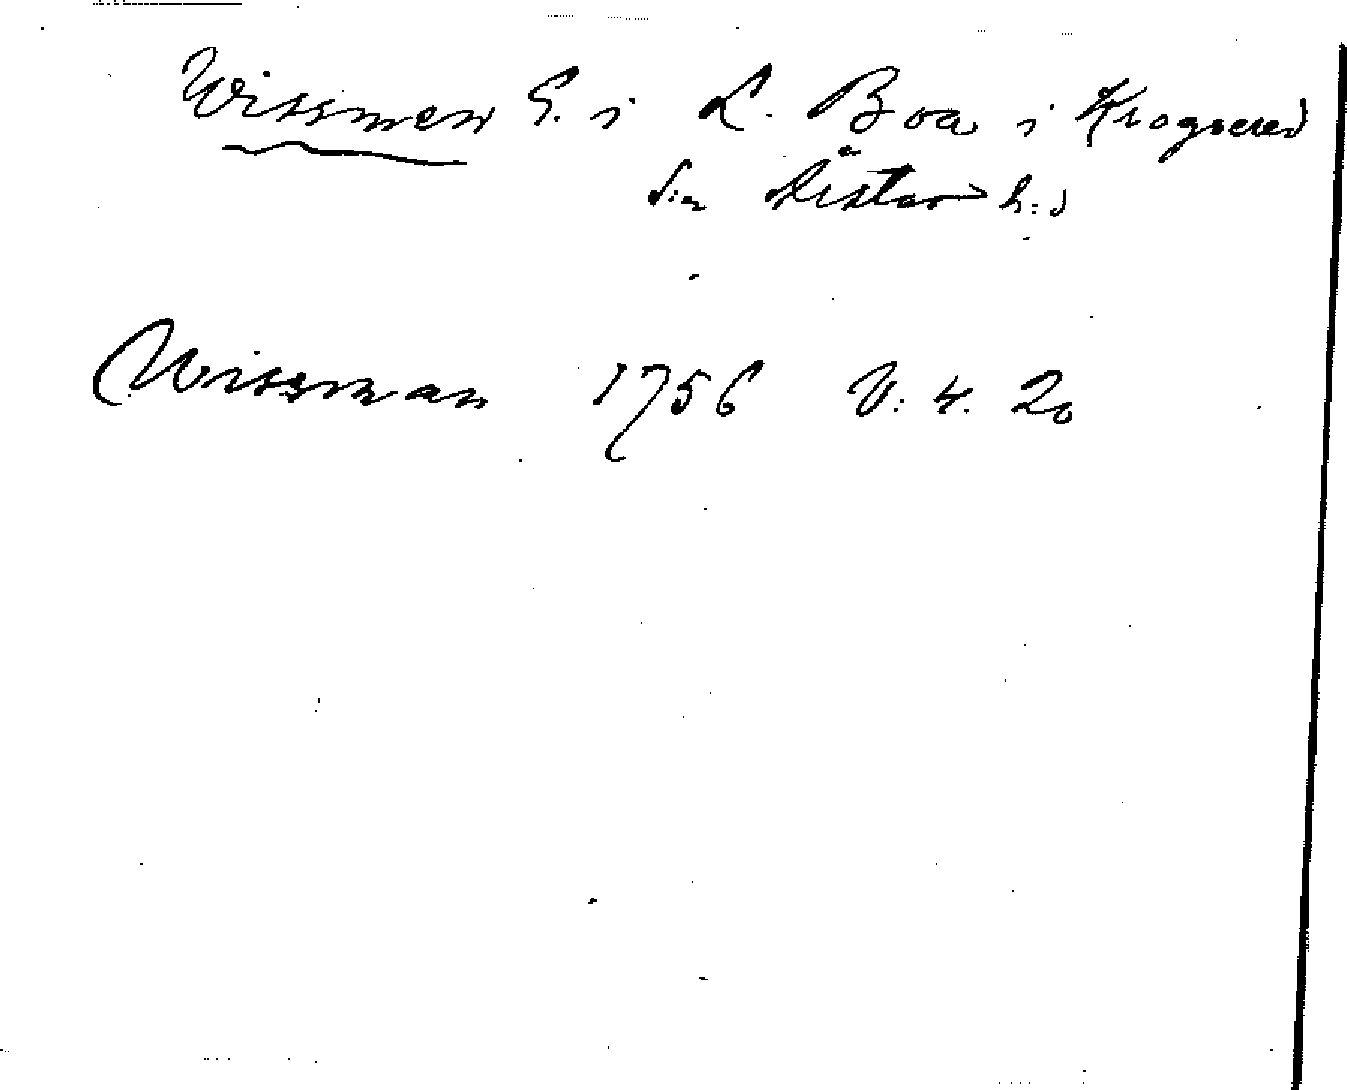 Wissmen S. i L. Boa i Krogsered
sn Ästar h:d
Wissman 1756 V: 4. 20